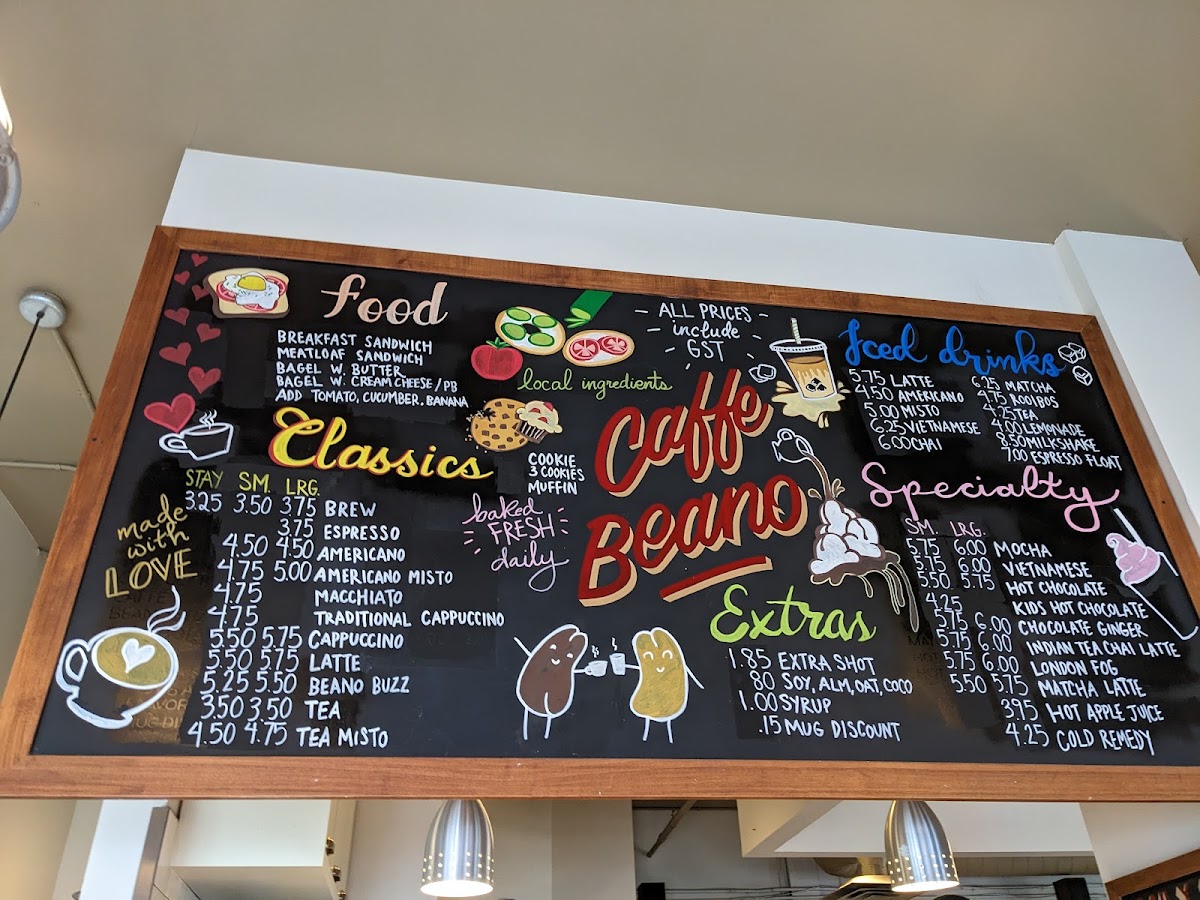 Food
BREAKFAST SANDWICH
MEATLOAF SANDWICH
BAGEL W. BUTTER
BAGEL W. CREAM CHEESE/PB
ADD TOMATO, CUCUMBER, BANANA
local ingredients
- ALL PRICES -
- include -
- GST -
Classics
STAY SM. LRG.
3.25 3.50 3.75 BREW
3.75 ESPRESSO
4.50 4.50 AMERICANO
4.75 5.00 AMERICANO MISTO
4.75 MACCHIATO
4.75 TRADITIONAL CAPPUCCINO
5.50 5.75 CAPPUCCINO
5.50 5.75 LATTE
5.25 5.50 BEANO BUZZ
3.50 3.50 TEA
4.50 4.75 TEA MISTO
made
with
LOVE
COOKIE
3 COOKIES
MUFFIN
baked
FRESH
daily
Caffe
Beano
Extras
1.85 EXTRA SHOT
.80 SOY, ALM, OAT, COCO
1.00 SYRUP
.15 MUG DISCOUNT
Iced drinks
5.75 LATTE
4.50 AMERICANO
5.00 MISTO
6.25 VIETNAMESE
6.00 CHAI
6.25 MATCHA
4.75 ROOIBOS
4.25 TEA
4.00 LEMONADE
8.50 MILKSHAKE
7.00 ESPRESSO FLOAT
Specialty
SM. LRG.
5.75 6.00 MOCHA
5.75 6.00 VIETNAMESE
5.50 5.75 HOT CHOCOLATE
4.25 KIDS HOT CHOCOLATE
5.75 6.00 CHOCOLATE GINGER
5.75 6.00 INDIAN TEA CHAI LATTE
5.75 6.00 LONDON FOG
5.50 5.75 MATCHA LATTE
3.95 HOT APPLE JUICE
4.25 COLD REMEDY